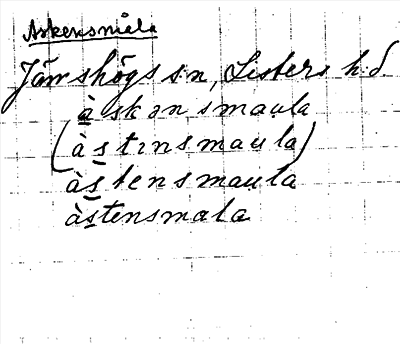 Askensmåla
Jämshögs sn, Listers hd
àskənsmaula
(àstınsmaula)
àstensmaula
àstensmala